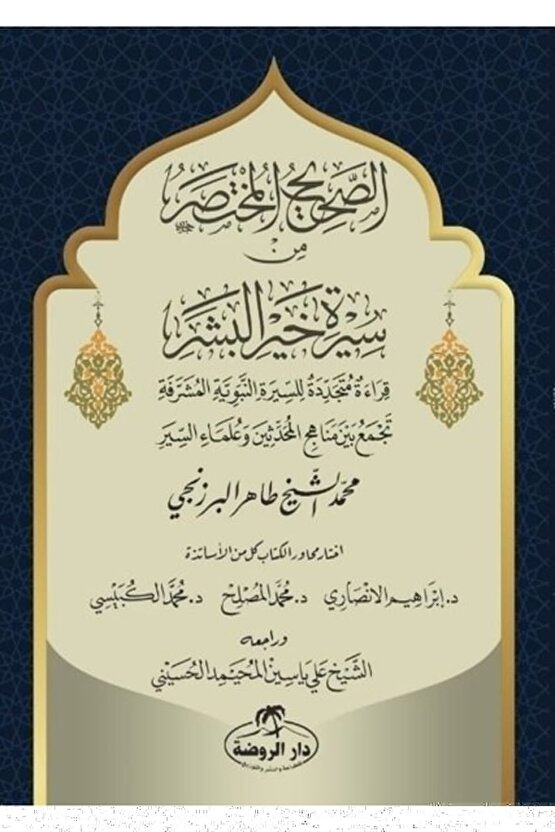 الصَّحِيحُ المُخْتَصَرُ
مِنْ
سِيْرَةِ خَيْرِ البَشَرِ ﷺ
قِرَاءَةٌ مُتَجَدِّدَةٌ لِلسِّيرَةِ النَّبَوِيَّةِ المُشَرَّفَةِ
تَجْمَعُ بَيْنَ مَنَاهِجِ المُحَدِّثِينَ وَعُلَمَاءِ السِّيَرِ
محمّد الشّيخ طاهر البرزنجي
اختار محاور الكتاب كل من الأساتذة
د. إِبْرَاهِيم الانْصَارِي د. مُحمَّد المُصْلِح د. مُحمَّد الكُبَيْسِي
وراجعه
الشَّيْخ عَلي يَاسِين المُحَيْمِد الحُسَيْني
دار الروضة
للطباعة والنشر والتوزيع